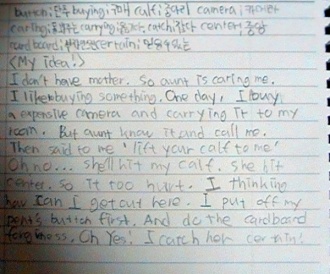 button; 단추 buying; 구매 calf; 종아리 camera; 카메라
caring; 돌보는 carrying; 옮기다 catch; 잡다 center; 중앙
cardboard; certain;
<My idea!>
I don't have mother. So aunt is caring me.
I like buying something. One day, I buy
a expensive camera and carrying it to my
room. But aunt know it and call me.
Then said to me 'lift your calf to me!'
Oh no... she'll hit my calf. she hit
center. so it too hurt. I thinking
how can I get out here. I put off my
pent's button first. And do the cardboard
Oh Yes! I catch her